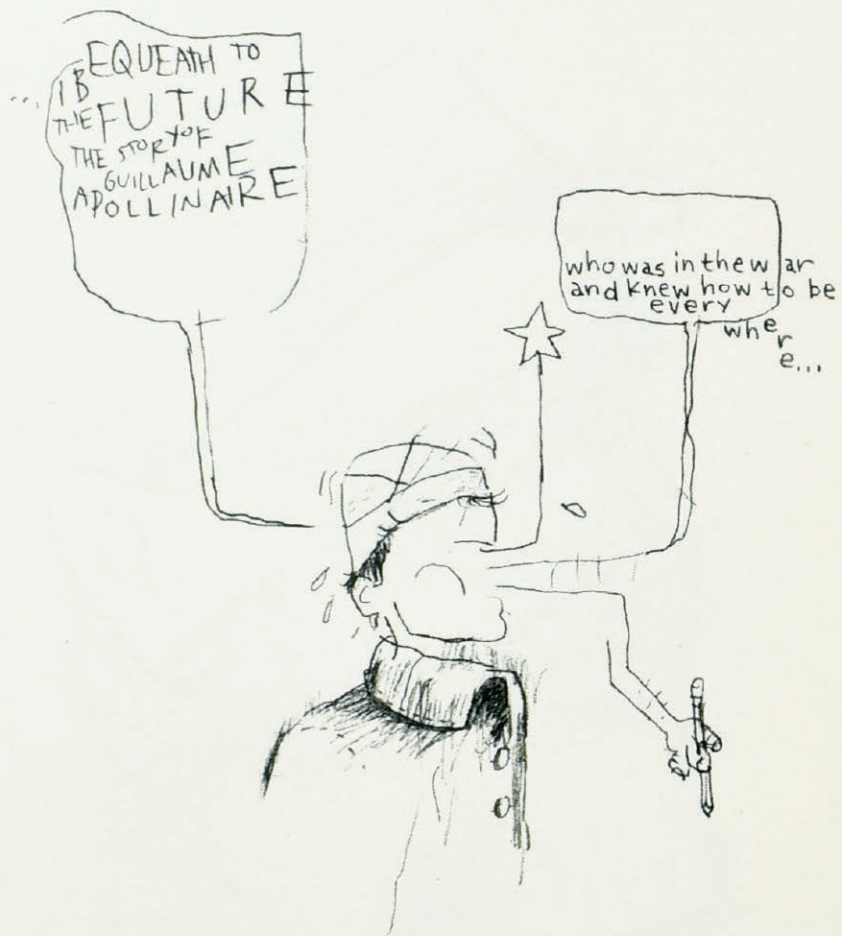 ...
I BEQUEATH TO
THE FUTURE
THE STORY OF
GUILLAUME
APOLLINAIRE
who was in the war
and knew how to be
every
where...